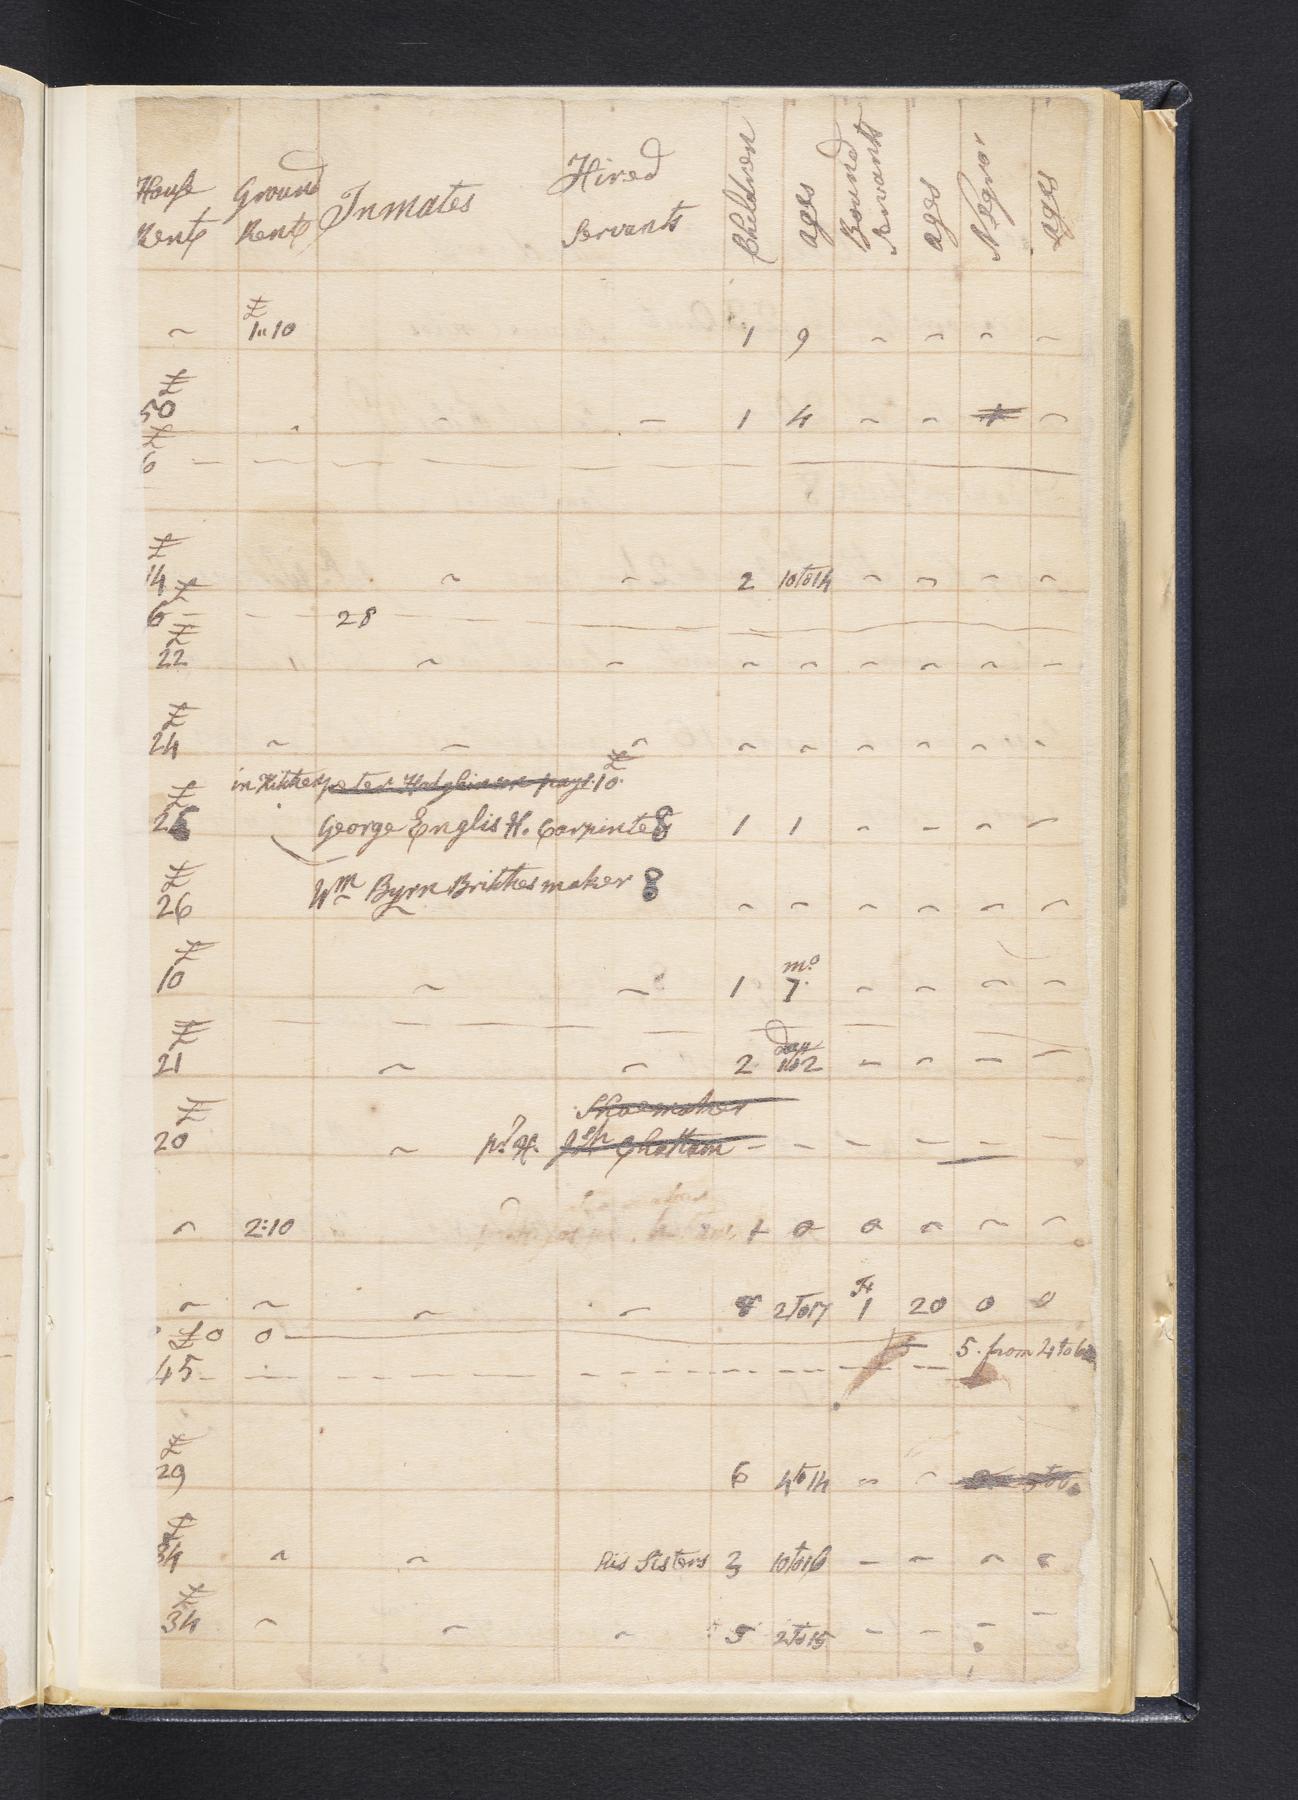 House Rent Ground Rent Inmates Hired Servants Children ages Bound Servants ages Negros ages
~ £ 1"10 1 9 ~ ~ ~ ~
£ 50 ~ — 1 4 ~ ~ 1 ~
£ 6 — — — — — —
£ 14 ~ ~ 2 10 to 14 ~ ~ ~ ~
£ 6 — — 28 — — —
£ 22 ~ ~ ~ ~ ~ ~ ~ —
£ 24 ~ ~ ~ ~ ~ ~ ~ ~ ~
in Kitchen peter Hodgkinson pays £ 10
£ 25 George Englis H. Carpinter 8 1 1 ~ – ~ –
Wm Byrn Brickes maker 8
£ 26 ~ ~ ~ ~ ~ ~ ~
£ 10 ~ ~ 1 mo 7 ~ ~ ~ ~
£ 21 ~ ~ 2 2 – ~ – –
Shoemaker
£ 20 ~ pr H. Jsh Chattam – – – – –
~ 2:10 1 0 0 0 ~ ~
~ ~ ~ ~ 8 2 to 17 H 1 20 0 0
£ 0 0 — 5 from 4 to 6
45 – – – – – – – – –
£ 29 6 4 to 14 ~ ~
£ 34 ~ ~ his Sisters 3 10 to 16 – – ~ ~
£ 34 ~ ~ ~ 5 2 to 15 – – – –